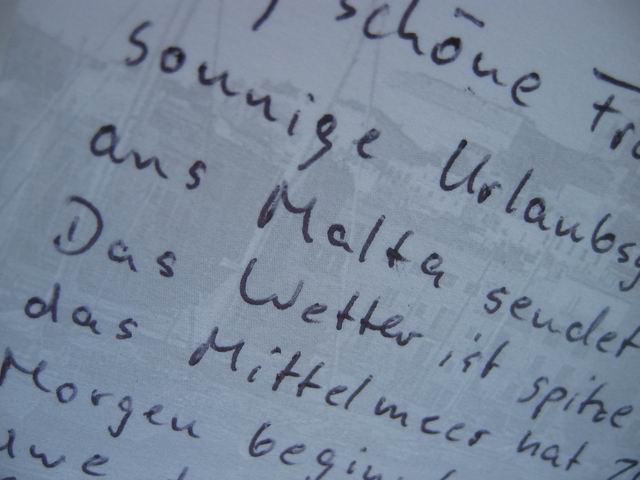 schöne
sonnige Urlaubsg
aus Malta sendet
Das Wetter ist spitze
das Mittelmeer hat
Morgen begin